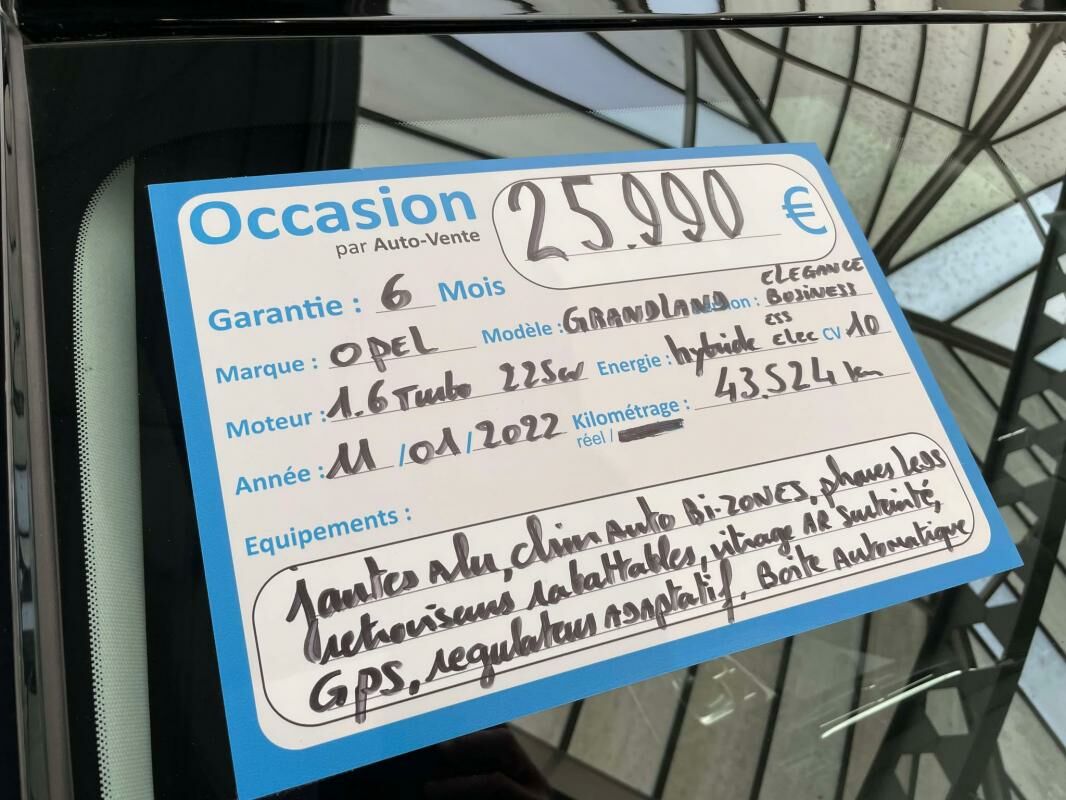 Occasion 25.990 €
par Auto-Vente
Garantie : 6 Mois
ELEGANCE
Marque : OPEL Modèle : GRANDLAND BUSINESS
Moteur : 1.6 Turbo 225cv Energie : hybride ESS elec CV 10
Année : 11 / 01 / 2022 Kilométrage : 43.524 km
réel /
Equipements :
jantes Alu, clim Auto Bi-ZONES, phares Leds
retroviseurs rabattables, vitrage AR Surteinté,
GPS, regulateur ADAptatif. Boite Automatique